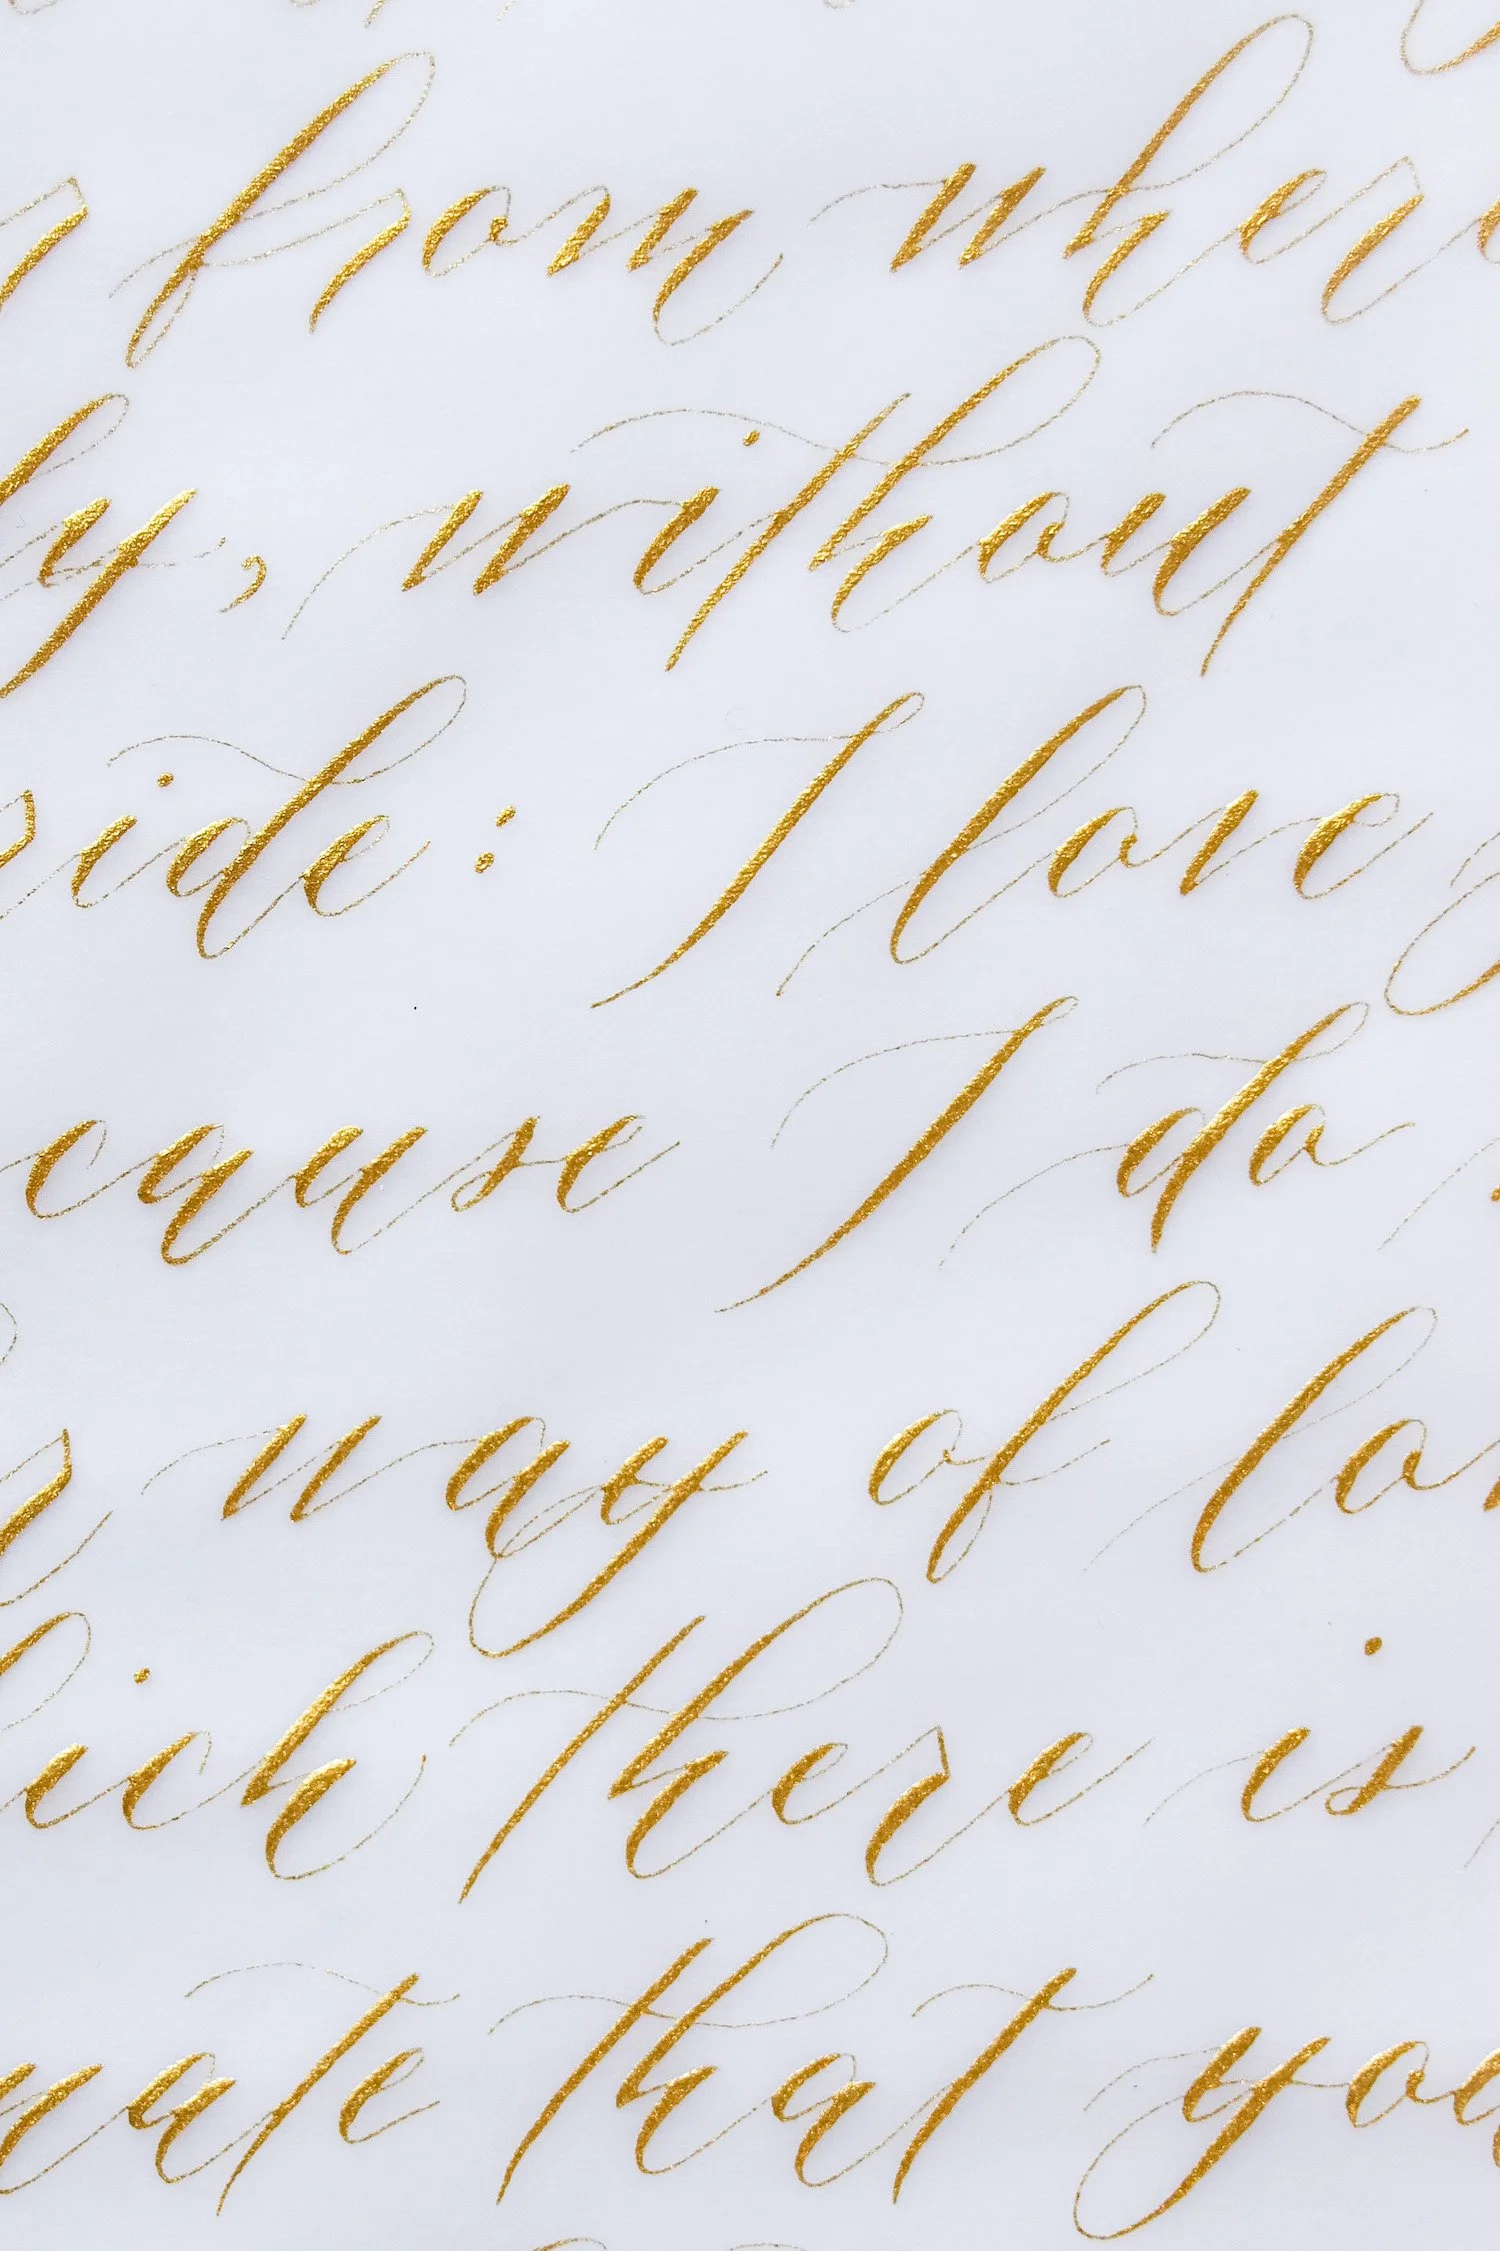 r from where
ly, without
ride: I love
cause I do
r way of lo
hich there is
mate that you